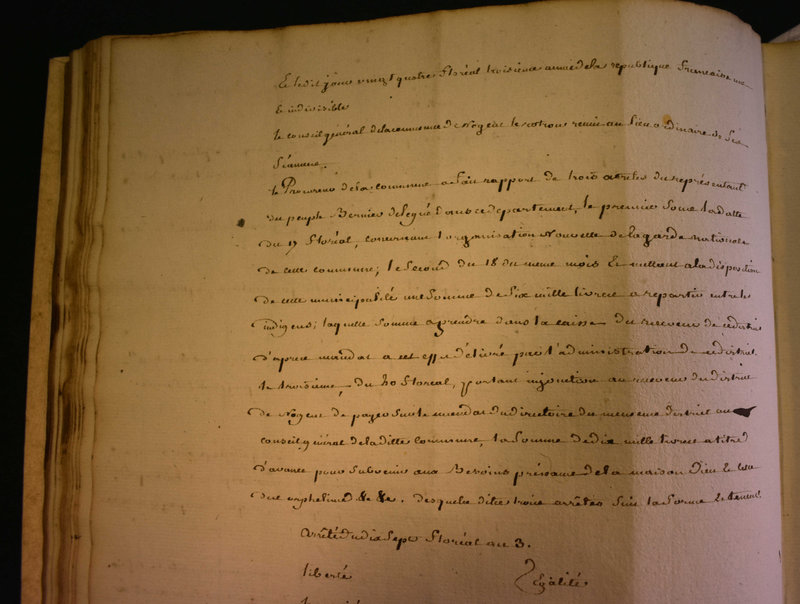 Et ledit jour vingt quatre floréal troisieme année de la republique francaise une
Et indivisible
le conseil général de la commune de Nogent le rotrou reuni au lieu ordinaire de ses
Séances.
le Procureur de la commune a fait rapport de trois arrêtés du représentant
du peuple Bernier delegué dans ce departement, le premier sous la datte
du 17 floréal, concernant l'organisation Nouvelle de la garde nationale
de cette commune; le second du 18 du meme mois Et mettant a la disposition
de cette municipalité une somme de six mille livres a repartir entre les
indigens; laquelle somme a prendre dans la caisse du receveur de ce district
d'apres mandat a cet effet délivré par l'administration de ce district.
le troisième, du 20 floreal, portant injonction au receveur du district
de Nogent de payer sur le mandat du directoire du meme district au
conseil général de la ditte commune, la somme de dix mille livres a titre
d'avance pour subvenir aux Besoins pressans de la maison Dieu Et
des orphelines &c &c. desquels dits trois arrêtés suit la forme Et teneur
arrêté du dix sept floréal an 3.
liberté Egalité